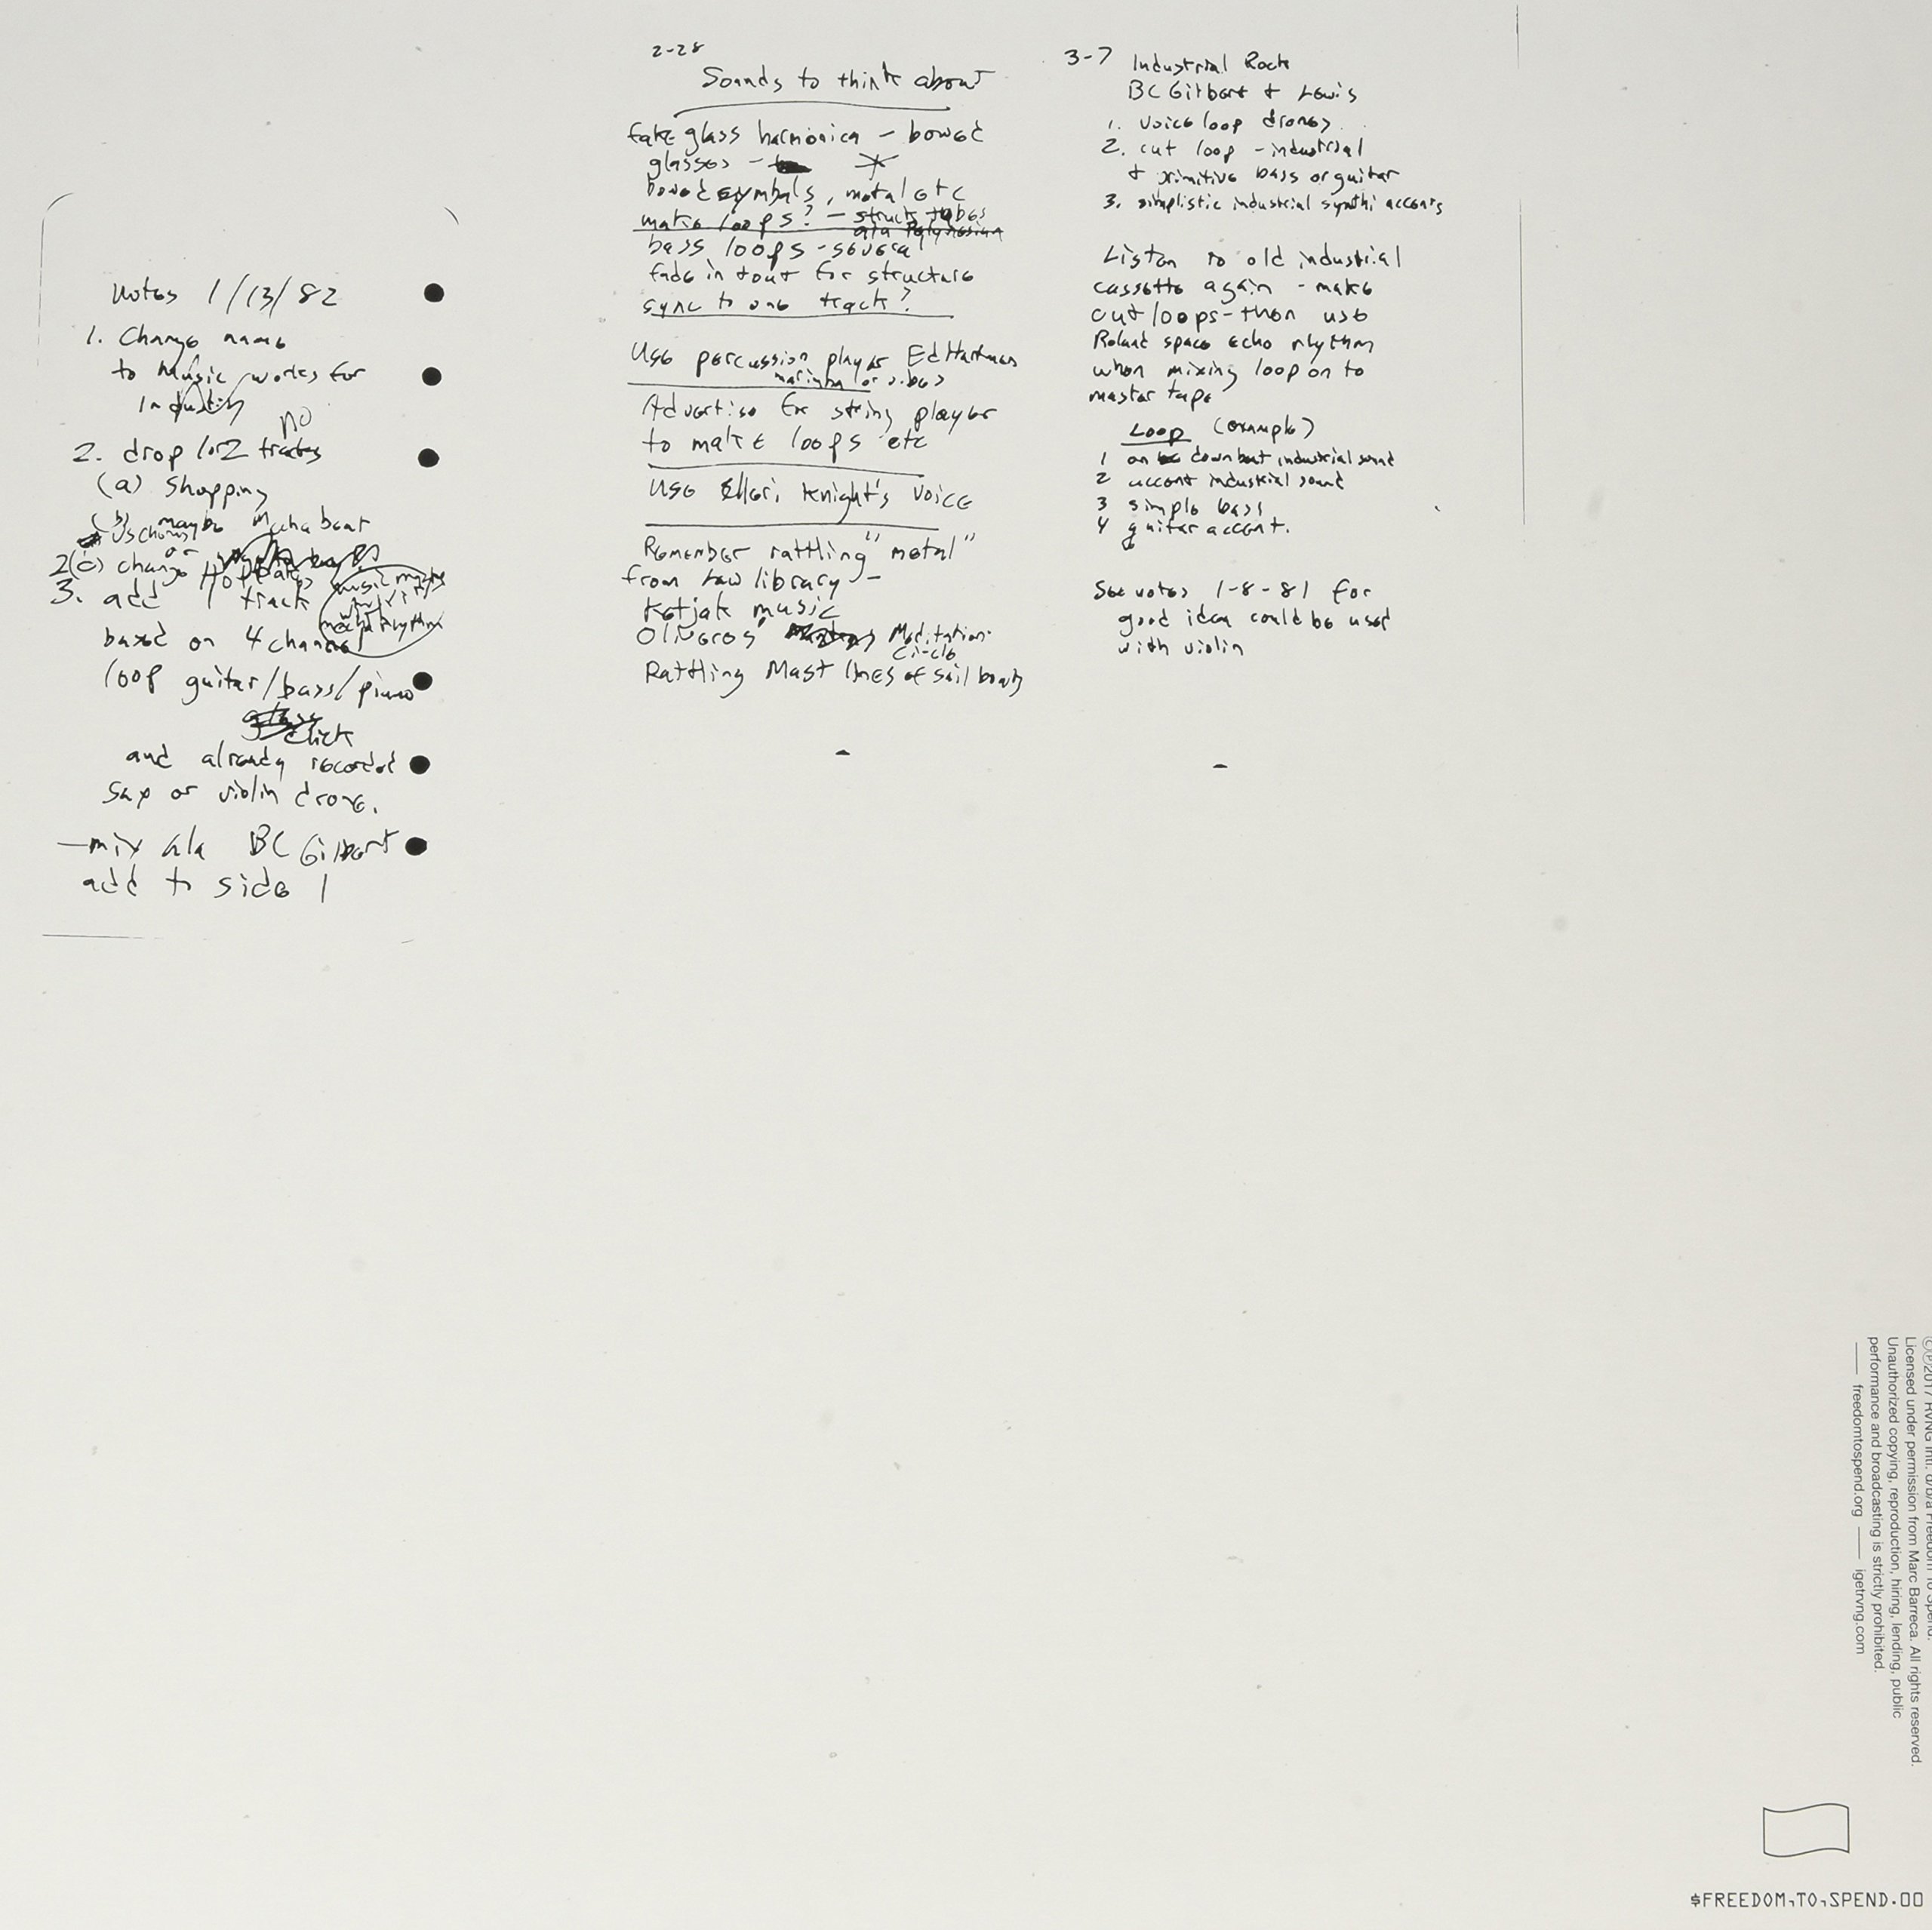 Notes 1/13/82
1. Change name
to Music works for
Industry
no
2. drop 1 or 2 tracks
(a) Shopping
(b) maybe
2(c) change
or
3. add 1 track
based on 4 channel
loop guitar/bass/piano
glass
click
and already recorded
Sax or violin drone.
—mix ala BC Gilbert
add to side 1
2-28
Sounds to think about
fake glass harmonica – bowed
glasses –
bowed cymbals, metal etc
make loops? – struck tubes
ala Polynesian
bass loops - several
fade in + out for structure
sync to one track?
Use percussion player Ed Hartman
marimba or vibes
Advertise for string player
to make loops etc
Use Knight's voice
Remember rattling "metal"
from library –
Ketjak music
Oliveros' Meditation
Circle
Rattling Mast lines of sail boats
3-7 Industrial Rock
BC Gilbert + Lewis
1. voice loop drones
2. cut loop - industrial
+ primitive bass or guitar
3. simplistic industrial synthi accents
Listen to old industrial
cassette again - make
cut loops - then use
Roland space echo rhythm
when mixing loop on to
master tape
Loop (example)
1 on downbeat industrial sound
2 accent industrial sound
3 simple bass
4 guitar accent.
See notes 1-8-81 for
good idea could be used
with violin
Licensed under permission from Marc Barreca. All rights reserved.
Unauthorized copying, reproduction, hiring, lending, public
performance and broadcasting is strictly prohibited.
—— freedomtospend.org —— igetrvng.com
$FREEDOM,TO,SPEND.00